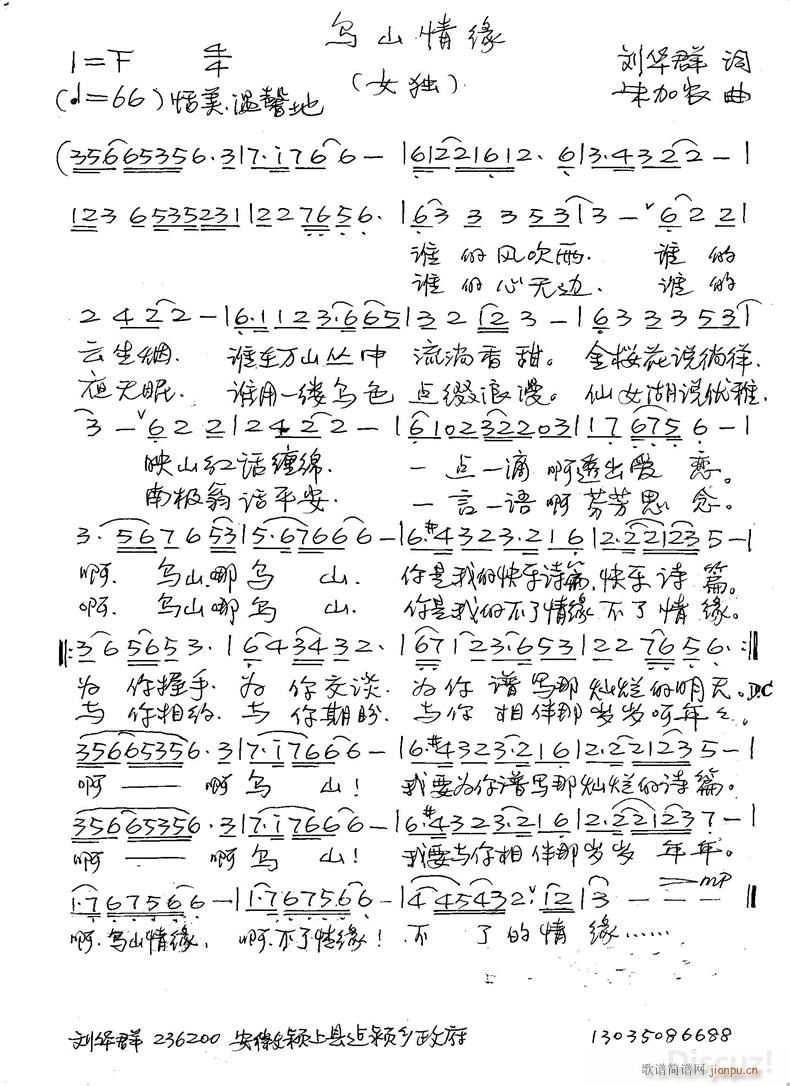 乌山情缘
1=F 4/4
(女独)
刘华群 词
(♩=66) 恬美.温馨地
加农 曲
(356665356·3|7·i766-|61221612·6|3·4322-|
123 6535231|227656·|633353|3-ˇ622|
谁的风吹雨. 谁的
谁的心无边. 谁的
2422-|6·1123·665|32123-|6333353|
云生烟. 谁在万山丛中 流淌香甜。 金桜花说徜徉.
夜无眠. 谁用一缕乌色 点缀浪漫。 仙女湖说优雅.
3-ˇ622|2422-|6102322203|176756-|
映山红话缠绵. 一点一滴啊透出爱恋。
南极翁话平安. 一言一语啊芬芳思念。
3·567653|5·67666-|6·#4323·216|2·221235-|
啊. 乌山哪乌山. 你是我的快乐诗篇,快乐诗篇。
啊. 乌山哪乌山. 你是我的不了情缘不了情缘。
‖:365653·|643432·|67123·653|227656·:‖
为你握手. 为你交谈. 为你谱写那灿烂的明天。D.C
与你相约. 与你期盼. 与你相伴那岁岁呵年々.
356665356·3|7·i7666-|6·#4323·216|2·221235-|
啊——啊乌山! 我要为你谱写那灿烂的诗篇。
356665356·3|7·i7666-|6·#4323·216|2·221237-|
啊——啊乌山! 我要与你相伴那岁岁年年。
mp
1·767566-|1·7675·66-|445432·ˇ12|3---‖
啊.乌山情缘, 啊.不了情缘! 不了的情缘……
刘华群 236200 安徽颍上县 颍乡政府 13035086688
Discuz!
歌谱简谱网 jianpu.cn